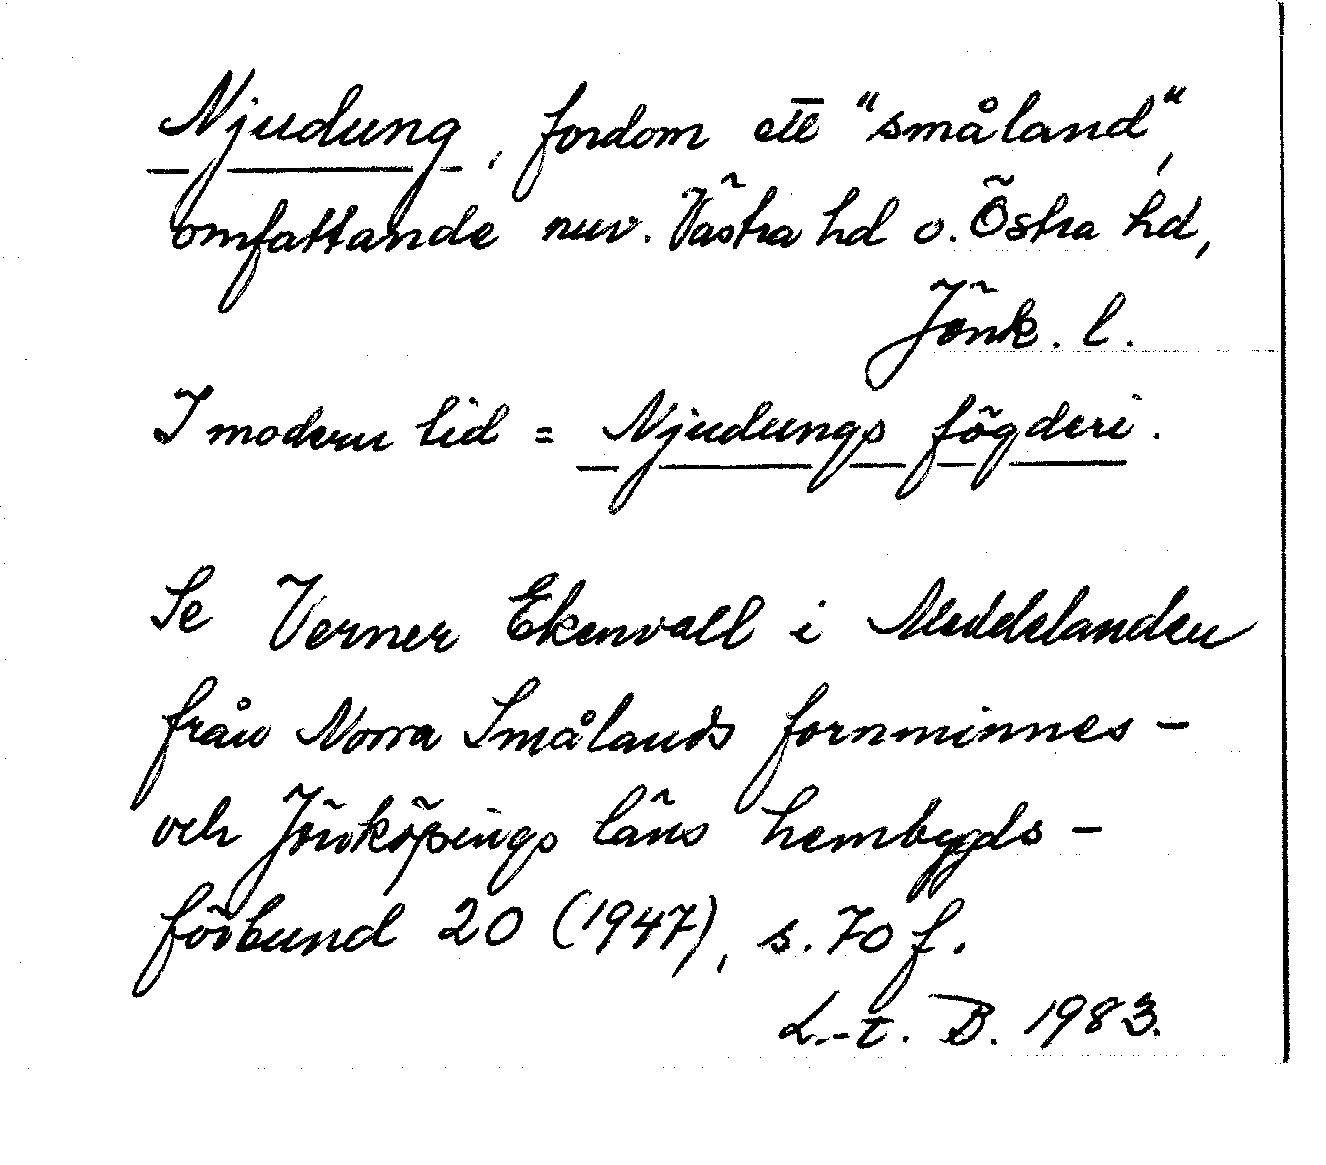 Njudung, fordom ett "småland",
omfattande nuv. Västra hd o. Östra hd,
Jönk. l.
I modern tid = Njudungs fögderi.
Se Verner Ekenvall i Meddelanden
från Norra Smålands fornminnes-
och Jönköpings läns hembygds-
förbund 20 (1947), s. 70 f.
L.-E. B. 1983.